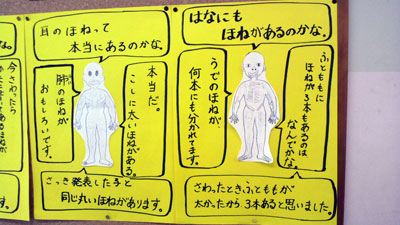 はなにも
ほねがあるのかな。
ふとももに
ほねが3本もあるのは
なんでかな。
うでのほねが、
何本にも分かれてます。
さわったとき、ふとももが
太かったから、3本あると思いました。
耳のほねって
本当にあるのかな。
本当だ。
こしに太いほねがある。
肺のほねが
おもしろいです。
さっき発表した子と
同じ丸いほねがあります。
今さわったら